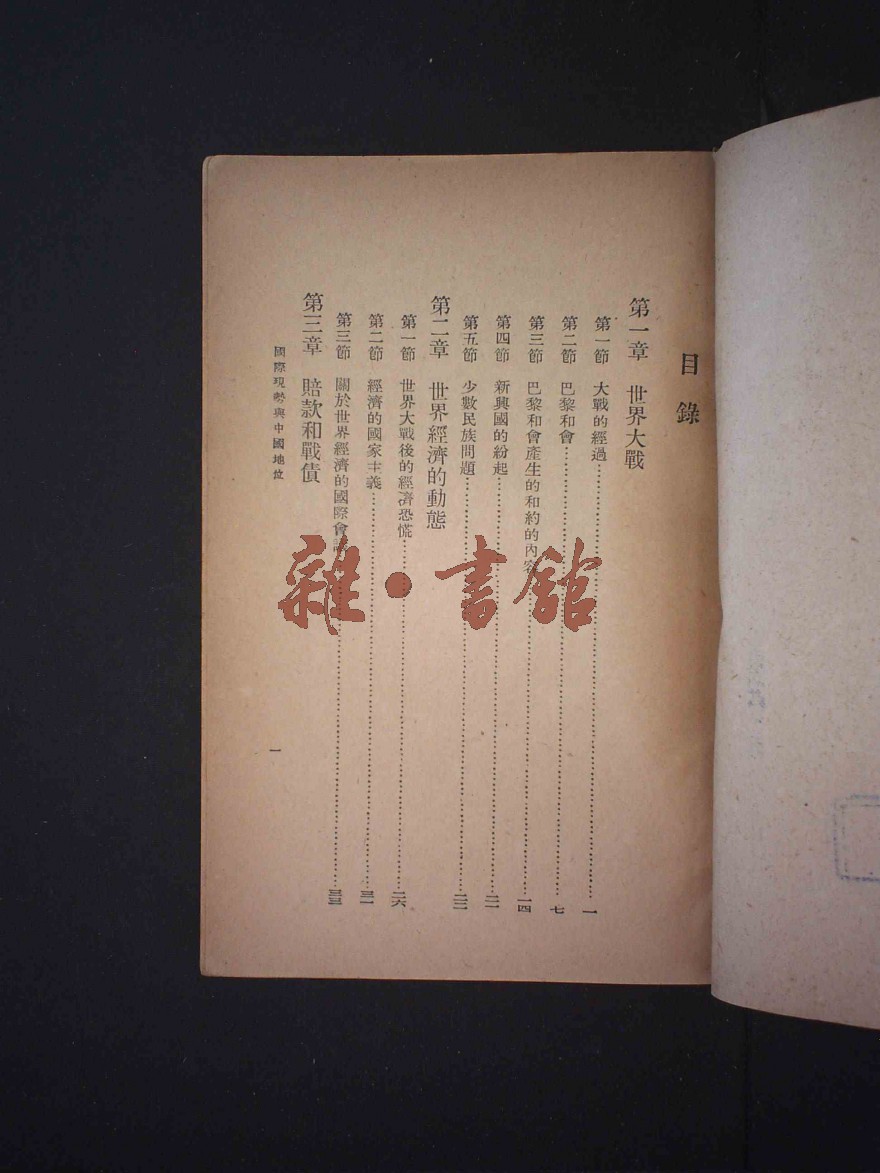 目錄
第一章 世界大戰
第一節 大戰的經過……一
第二節 巴黎和會……七
第三節 巴黎和會產生的和約的內容……一四
第四節 新興國的紛起……二一
第五節 少數民族問題……二三
第二章 世界經濟的動態
第一節 世界大戰後的經濟恐慌……二六
第二節 經濟的國家主義……三一
第三節 關於世界經濟的國際會……三三
第三章 賠款和戰債
國際現勢與中國地位
一
雜·書館